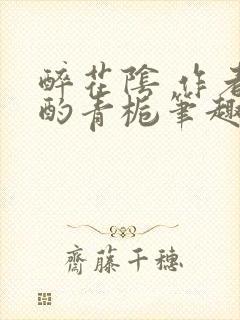 醉花陰 作者
酌青梔筆趣
齋藤千穗